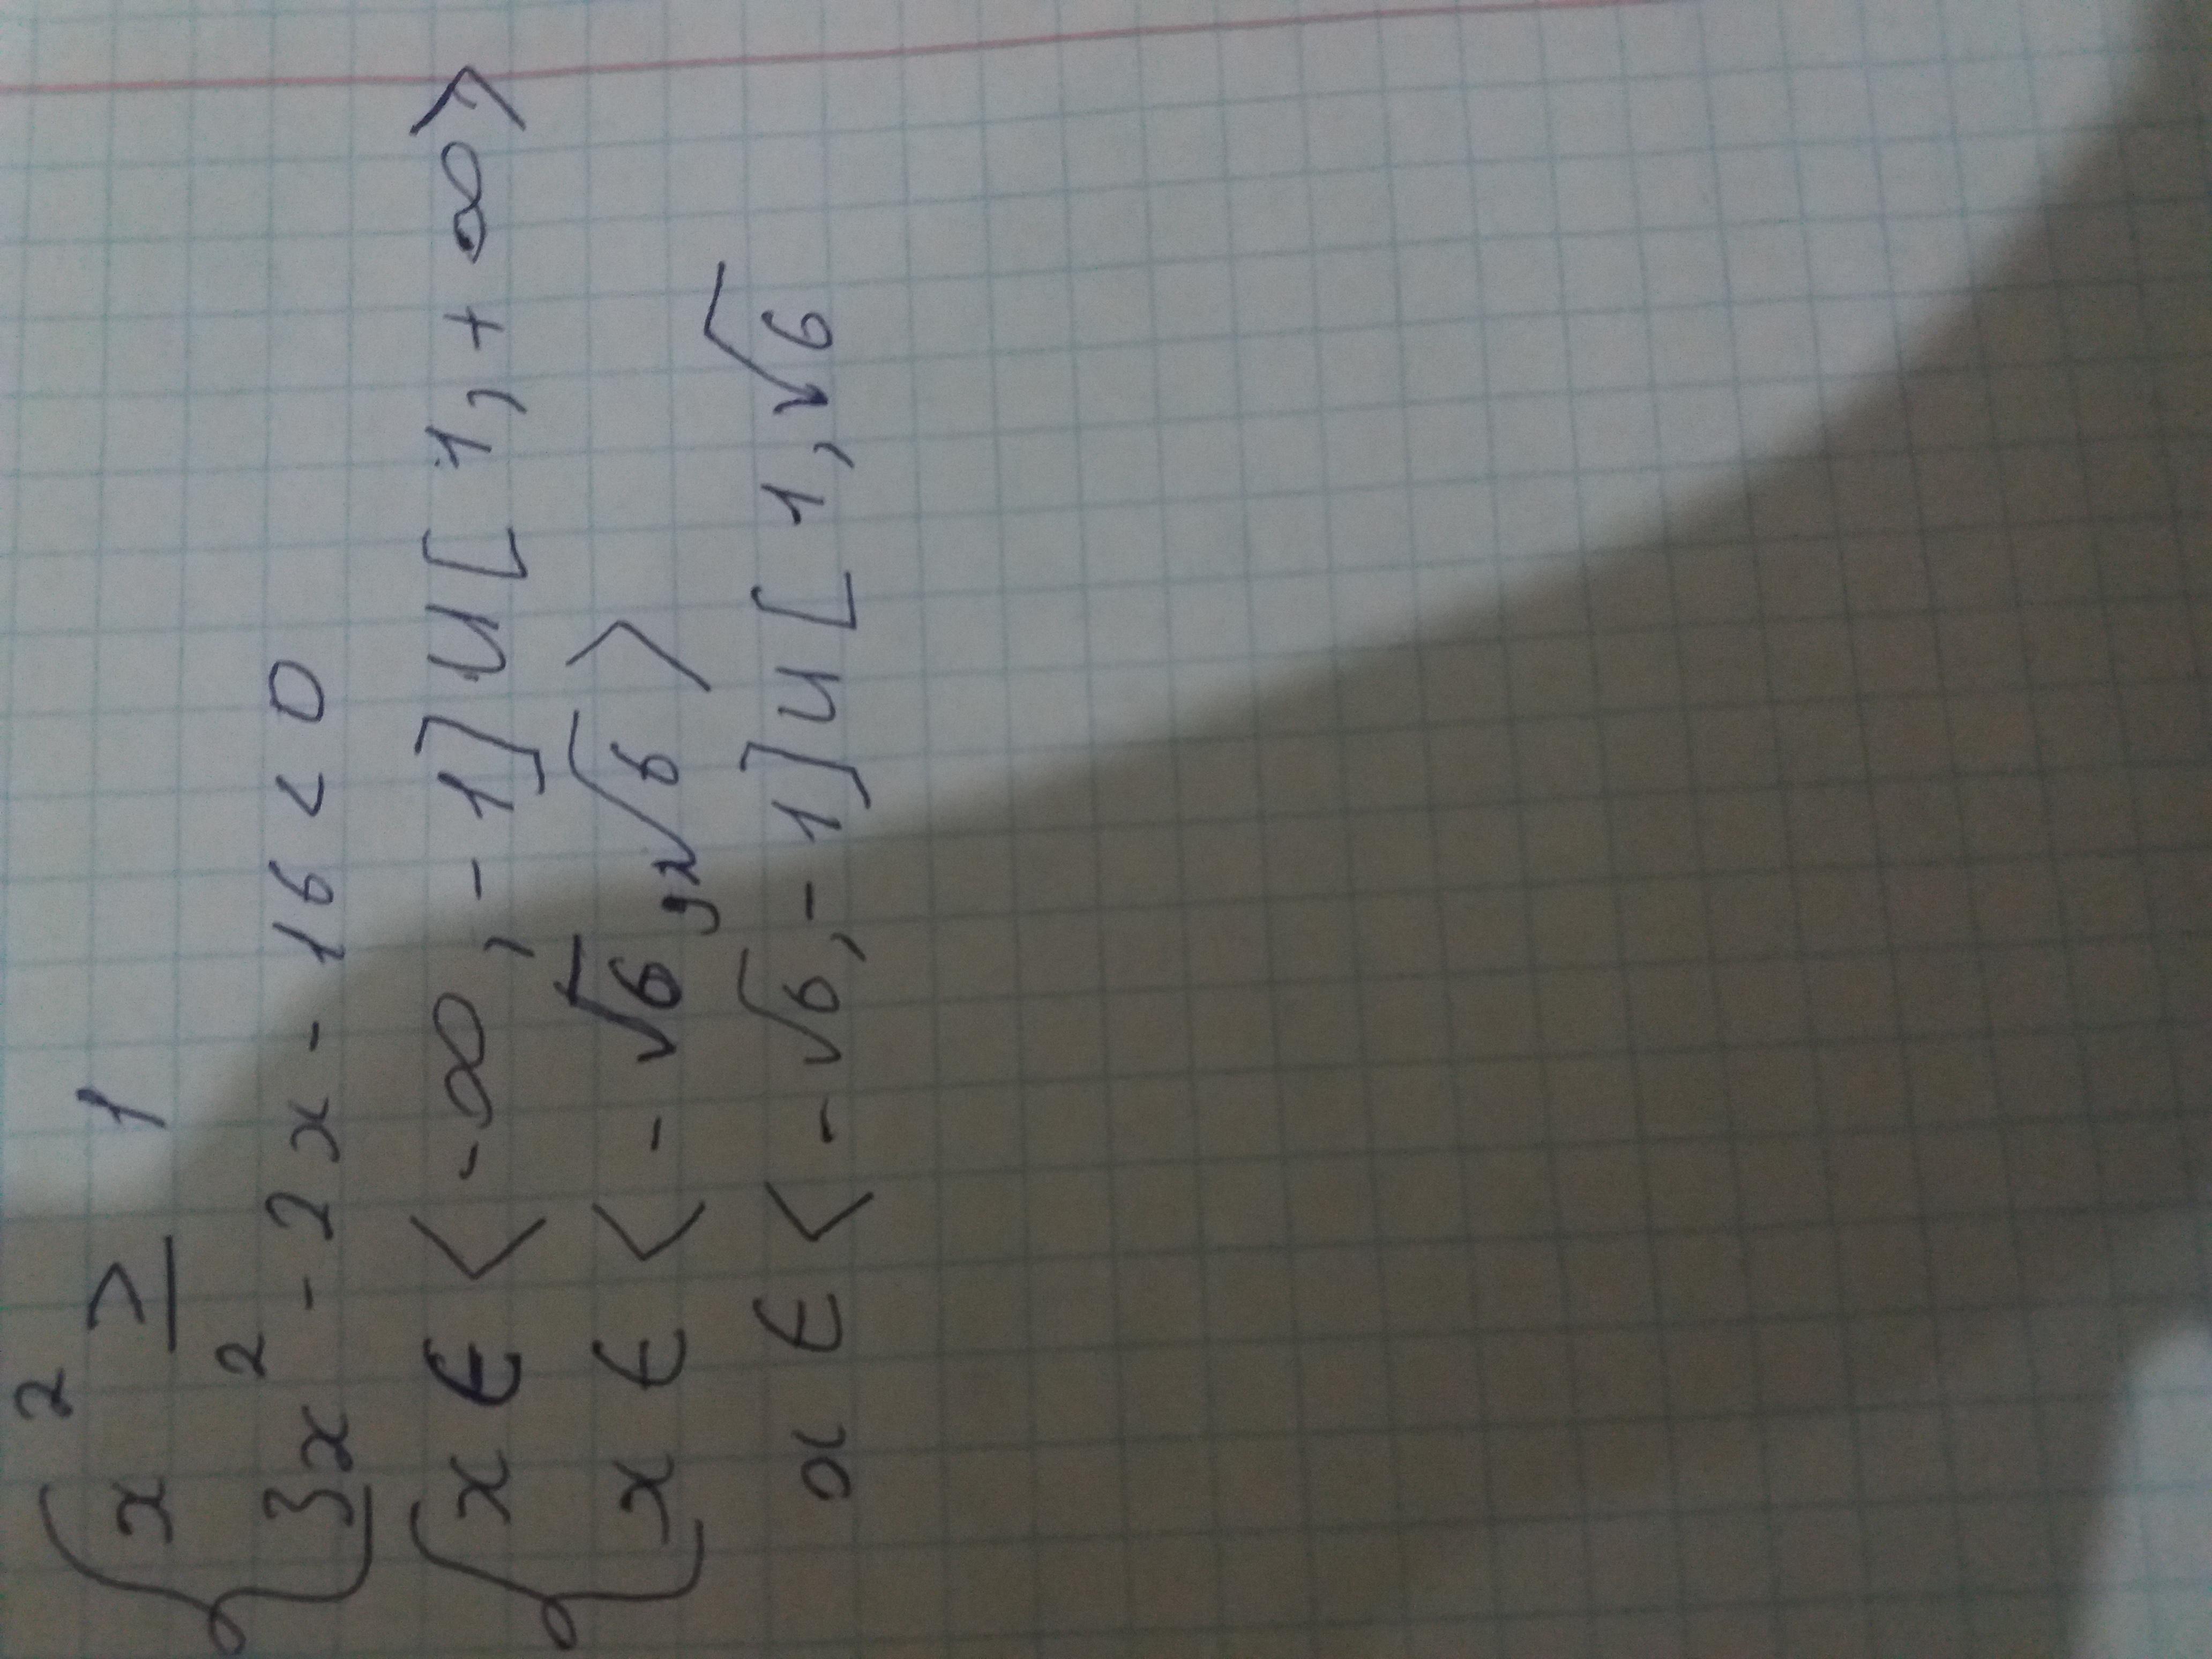 { x² ≥ 1
3x² - 2x - 16 < 0
{ x ∈ < -∞, -1] U [ 1, + ∞ >
x ∈ < -√6, √6 >
x ∈ < -√6, -1] U [ 1, √6